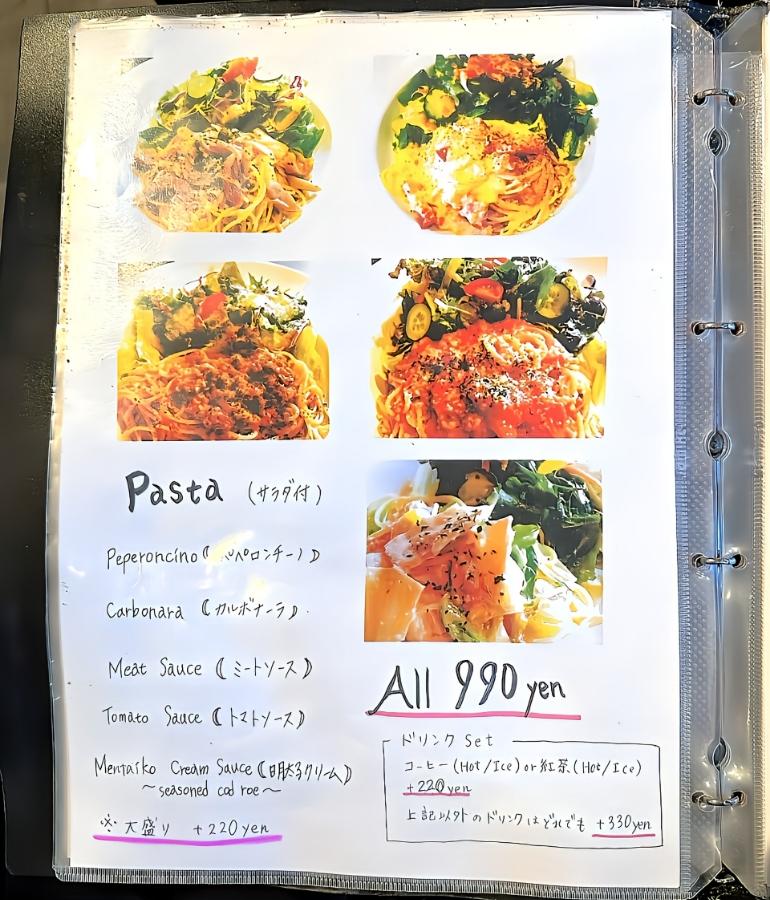 Pasta (サラダ付)
Peperoncino (ペペロンチーノ)
Carbonara (カルボナーラ)
Meat Sauce (ミートソース)
Tomato Sauce (トマトソース)
Mentaiko Cream Sauce (明太子クリーム)
〜seasoned cod roe〜
※大盛り +220yen
All 990 yen
ドリンク Set
コーヒー (Hot/Ice) or 紅茶 (Hot/Ice)
+220yen
上記以外のドリンクはどれでも +330yen